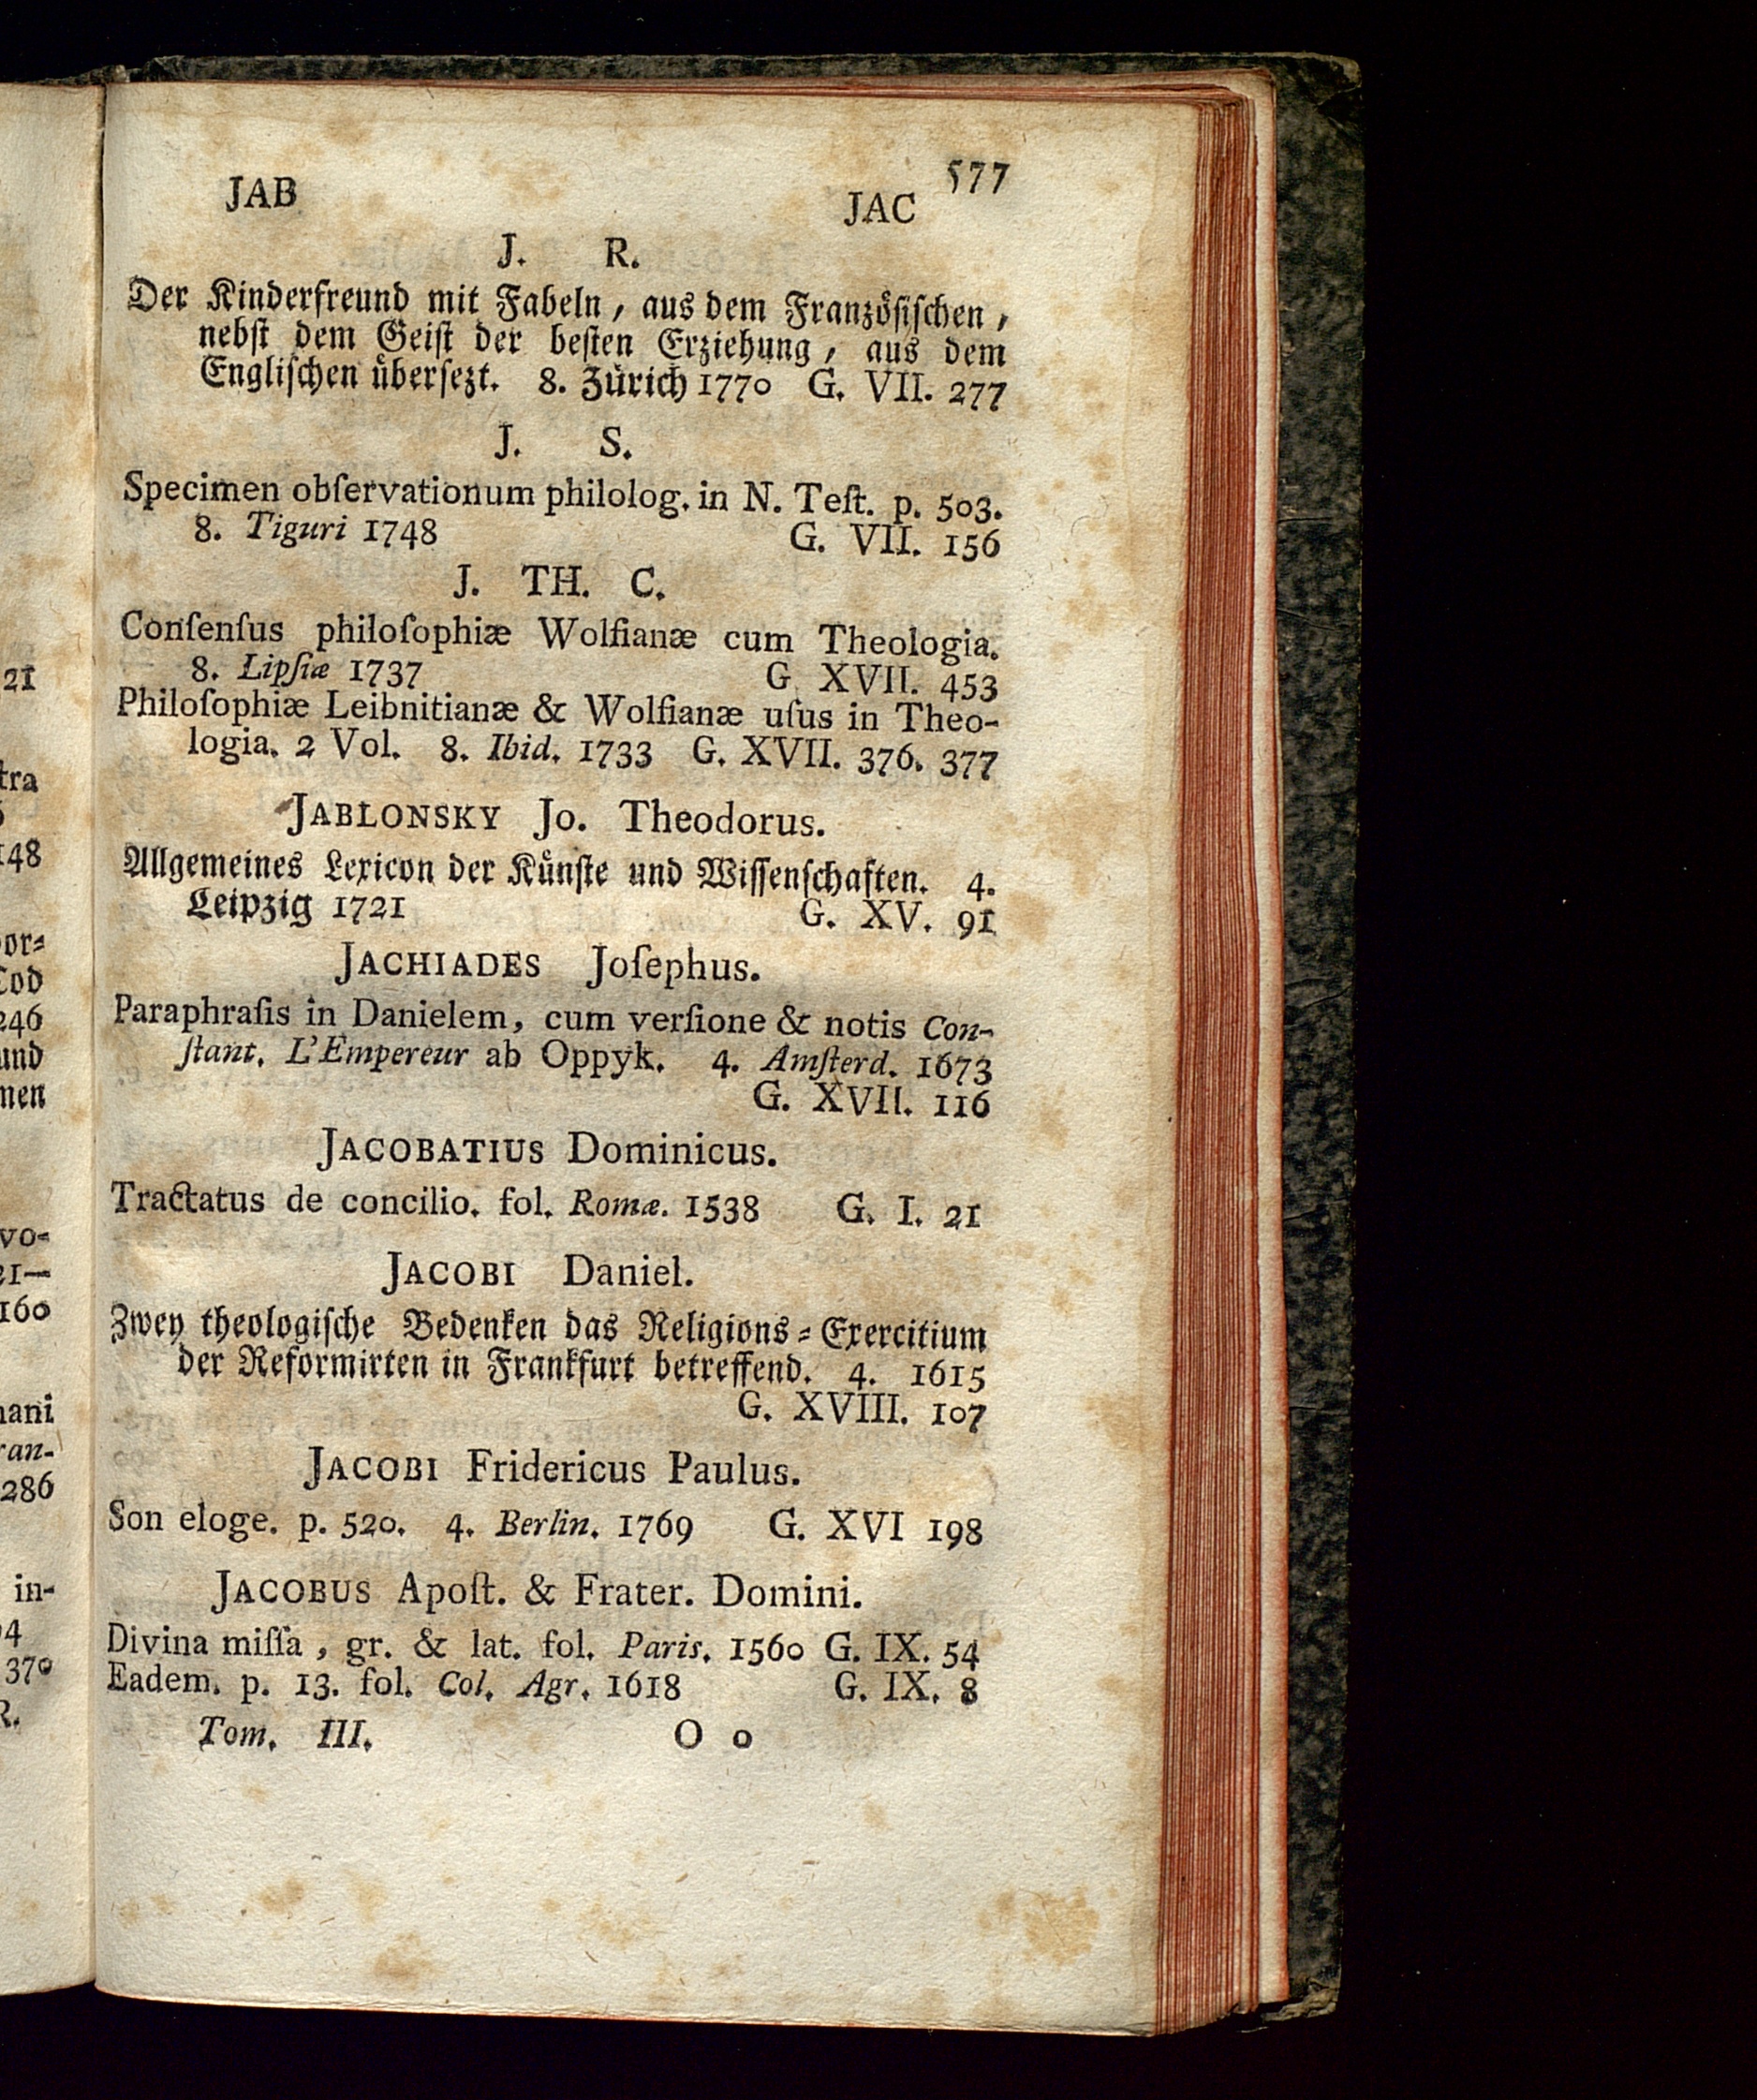 577
JAB JAC
J. R.
Der Kinderfreund mit Fabeln, aus dem Französischen,
nebst dem Geist der besten Erziehung, aus dem
Englischen übersezt. 8. Zürich 1770 G. VII. 277
J. S.
Specimen obſervationum philolog. in N. Teſt. p. 503.
8. Tiguri 1748 G. VII. 156
J. TH. C.
Conſenſus philoſophiæ Wolfianæ cum Theologia.
8. Lipſiæ 1737 G. XVII. 453
Philoſophiæ Leibnitianæ & Wolfianæ uſus in Theo-
logia. 2 Vol. 8. Ibid. 1733 G. XVII. 376. 377
JABLONSKY Jo. Theodorus.
Allgemeines Lexicon der Künste und Wissenschaften. 4.
Leipzig 1721 G. XV. 91
JACHIADES Joſephus.
Paraphraſis in Danielem, cum verſione & notis Con-
ſtant. L'Empereur ab Oppyk. 4. Amſterd. 1673
G. XVII. 116
JACOBATIUS Dominicus.
Tractatus de concilio. fol. Romæ. 1538 G. I. 21
JACOBI Daniel.
Zwey theologische Bedenken das Religions-Exercitium
der Reformirten in Frankfurt betreffend. 4. 1615
G. XVIII. 107
JACOBI Fridericus Paulus.
Son eloge. p. 520. 4. Berlin. 1769 G. XVI 198
JACOBUS Apoſt. & Frater. Domini.
Divina miſſa, gr. & lat. fol. Paris. 1560 G. IX. 54
Eadem. p. 13. fol. Col. Agr. 1618 G. IX. 8
Tom. III. O o